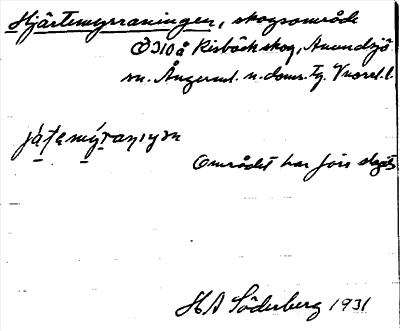 Hjärtemyrraningen, skogsområde
Ö310 å Risbäck skog, Anundsjö
sn. Ångerml. n. doms. tg. Vnorrl. l.
jätemýraniŋm
Området har förr slagits
H A Söderberg 1931